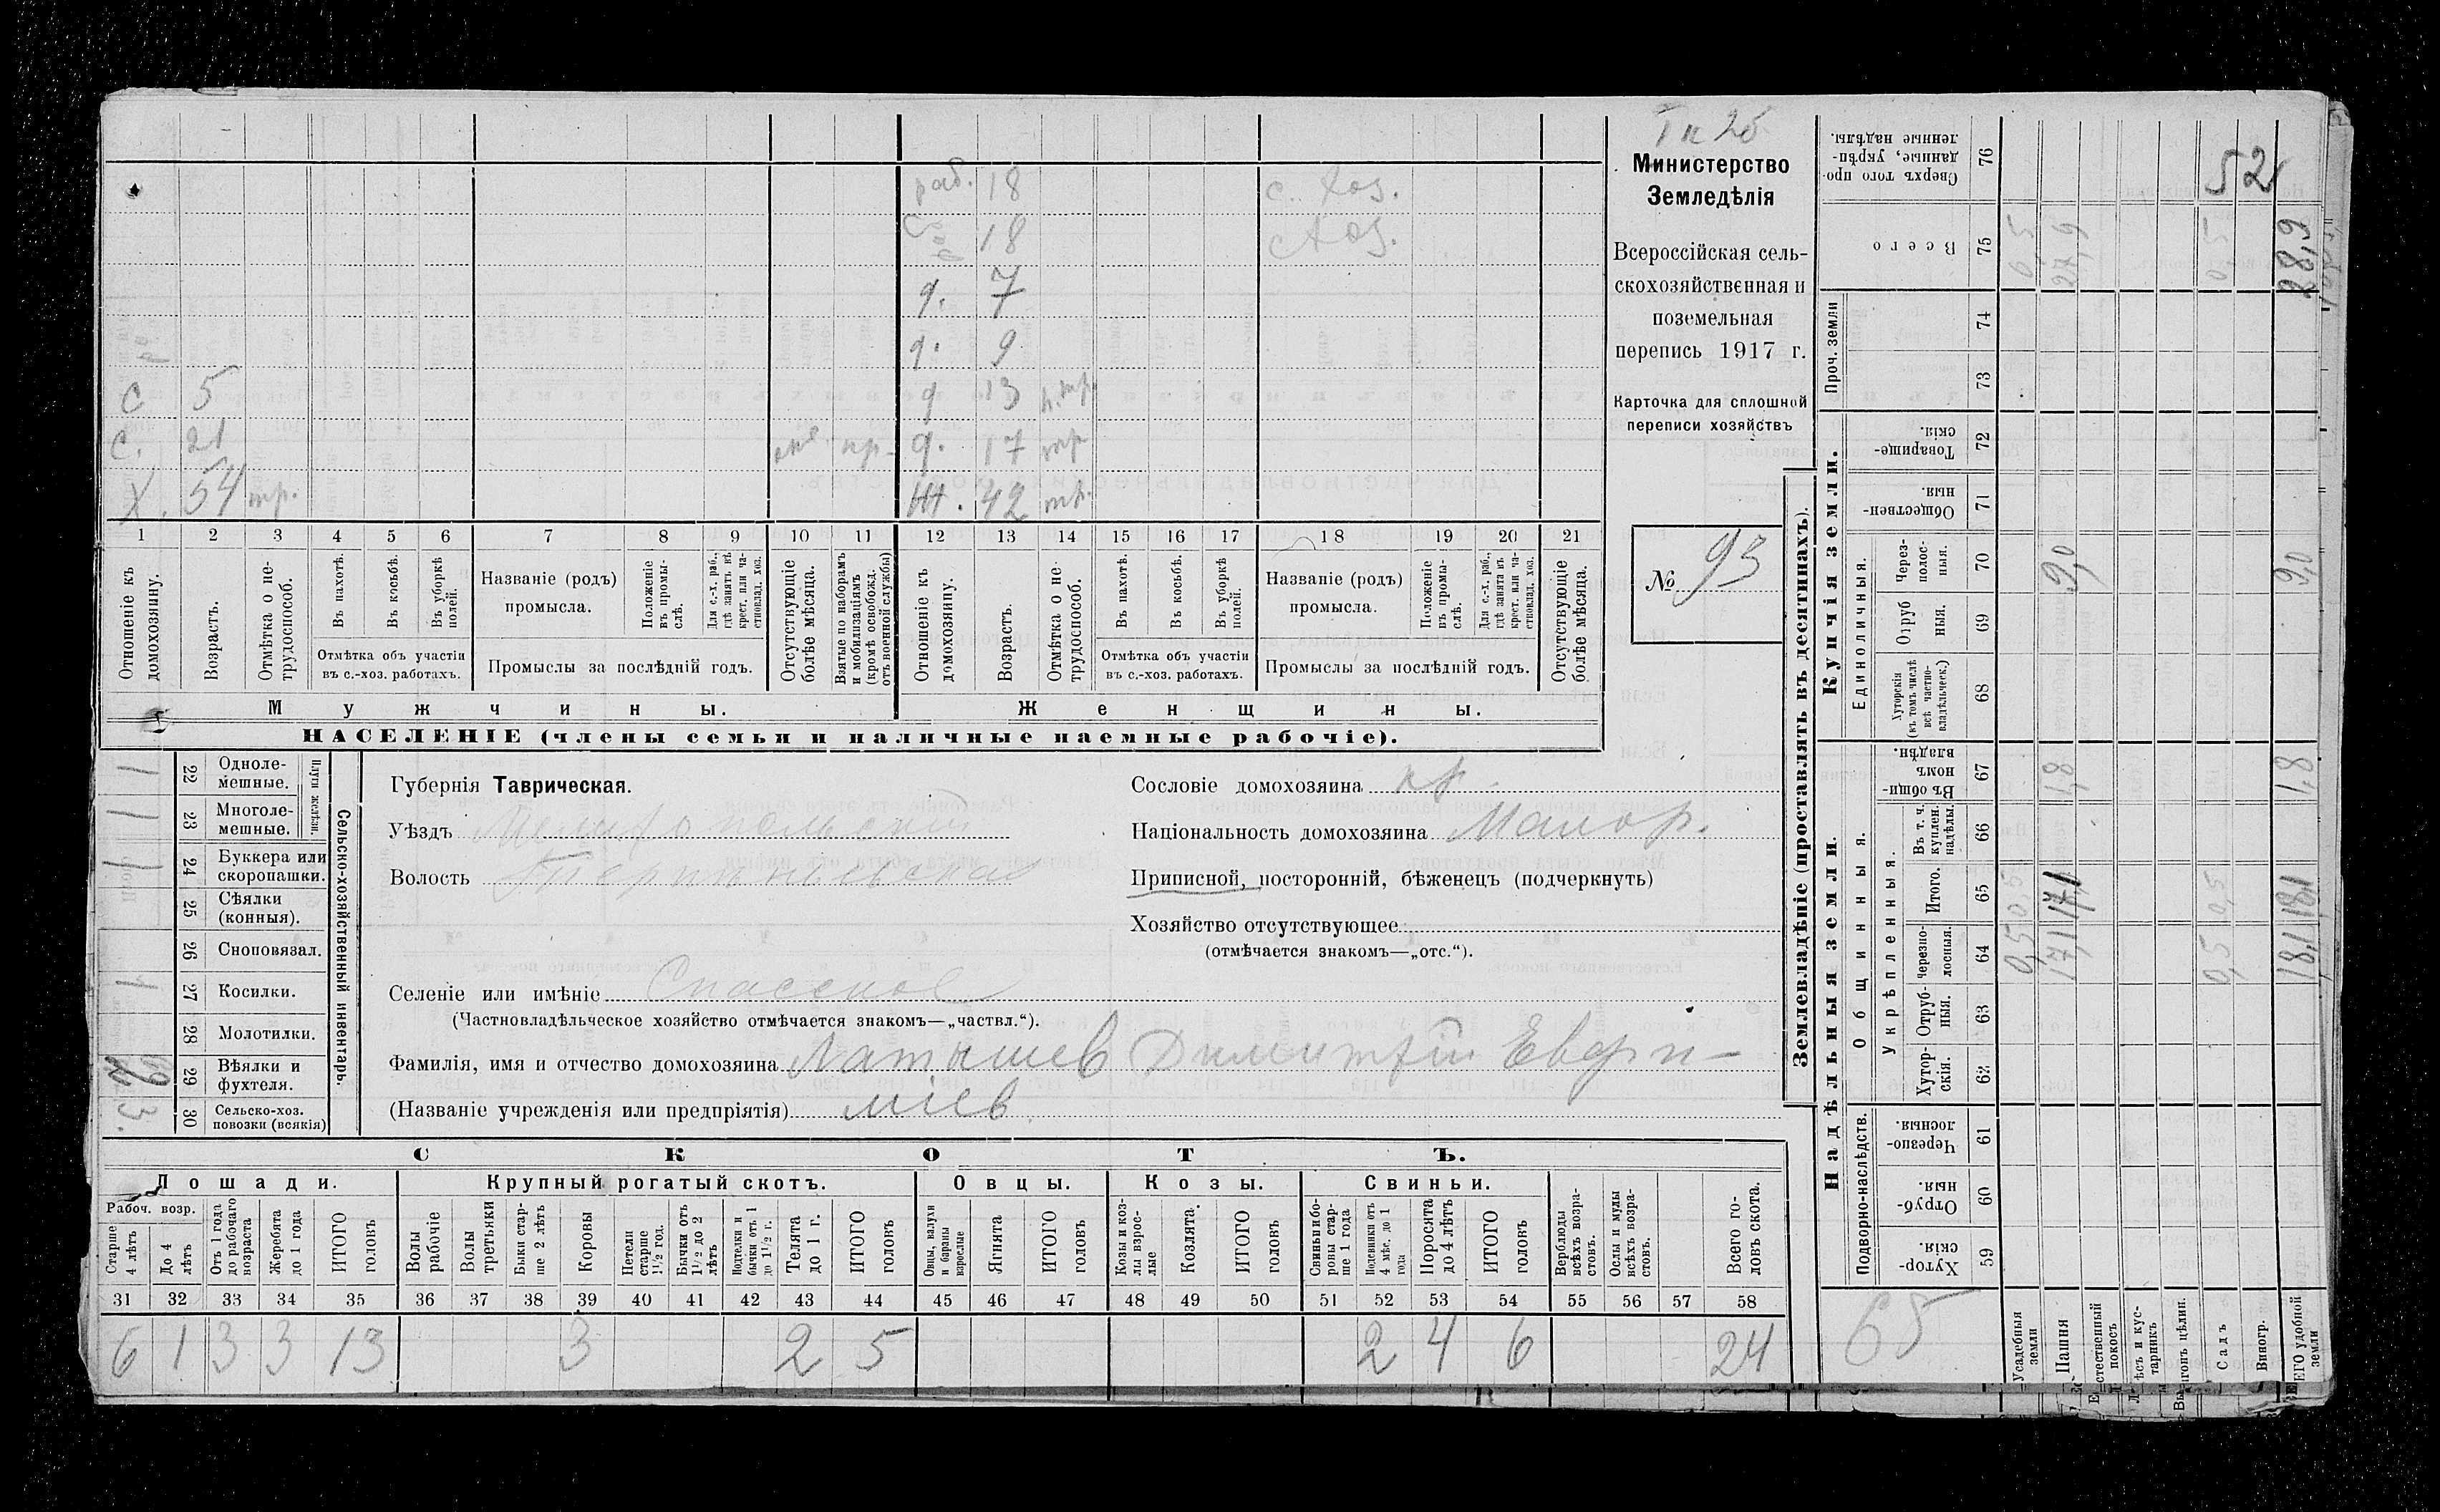 Министерство
Земледѣлія
Всероссійская сель-
скохозяйственная и
поземельная
перепись 1917 г.
Карточка для сплошной
переписи хозяйствъ
№ 93
раб. 18 с. хоз.
18 хоз.
д. 7
д. 9
с 5 д 13 п. тр.
с. 21 кр. д. 17 тр
х. 54 тр. ж. 42 тр.
1 2 3 4 5 6 7 8 9 10 11 12 13 14 15 16 17 18 19 20 21
Отношеніе къ домохозяину.
Возрастъ.
Отмѣтка о не-трудоспособ.
Въ пахотѣ.
Въ косьбѣ.
Въ уборкѣ полей.
Отмѣтка объ участіи
въ с.-хоз. работахъ.
Названіе (родъ)
промысла.
Положеніе въ промы-слѣ.
Для с.-х. раб., гдѣ занятъ въ крест. или ча-стновлад. хоз.
Промыслы за послѣдній годъ.
Отсутствующіе болѣе мѣсяца.
Взятые по наборамъ и мобилизаціямъ (кромѣ освобожд. отъ военной службы)
Отношеніе къ домохозяину.
Возрастъ.
Отмѣтка о не-трудоспособ.
Въ пахотѣ.
Въ косьбѣ.
Въ уборкѣ полей.
Отмѣтка объ участіи
въ с.-хоз. работахъ.
Названіе (родъ)
промысла.
Положеніе въ промы-слѣ.
Для с.-х. раб., гдѣ занята въ крест. или ча-стновлад. хоз.
Промыслы за послѣдній годъ.
Отсутствующіе болѣе мѣсяца.
Мужчины. Женщины.
НАСЕЛЕНІЕ (члены семьи и наличные наемные рабочіе).
Сельско-хозяйственный инвентарь.
Плуги желѣзн.
1 22 Одноле-мешные.
1 23 Многоле-мешные.
1 24 Буккера или скоропашки.
25 Сѣялки (конныя).
26 Сноповязал.
1 27 Косилки.
28 Молотилки.
29 Вѣялки и фухтеля.
3. 30 Сельско-хоз. повозки (всякія)
Губернія Таврическая.
Уѣздъ Мелитопольскій
Волость
Сословіе домохозяина кр.
Національность домохозяина Малор.
Приписной, посторонній, бѣженецъ (подчеркнуть)
Хозяйство отсутствующее
(отмѣчается знакомъ—„отс.“).
Селеніе или имѣніе Спасское
(Частновладѣльческое хозяйство отмѣчается знакомъ—„частвл.“).
Фамилія, имя и отчество домохозяина Латышев Димитрій Евфи-
(Названіе учрежденія или предпріятія) міев
СКОТЪ.
Лошади. Крупный рогатый скотъ. Овцы. Козы. Свиньи.
Рабоч. возр.
Старше 4 лѣтъ
До 4 лѣтъ
Отъ 1 года до рабочаго возраста
Жеребята до 1 года
ИТОГО головъ
Волы рабочіе
Волы третьяки
Быки стар-ше 2 лѣтъ
Коровы
Нетели старше 1½ год.
Бычки отъ 1½ до 2 лѣтъ
Подтелки и бычки отъ 1 до 1½ г.
Телята до 1 г.
ИТОГО головъ
Овцы, валухи и бараны взрослые
Ягнята
ИТОГО головъ
Козы и коз-лы взрос-лые
Козлята.
ИТОГО головъ
Свиньи бо-ровы стар-ше 1 года
Подсвинки отъ 4 мѣс. до 1 года
Поросята до 4 лѣтъ
ИТОГО головъ
Верблюды всѣхъ возра-стовъ.
Ослы и мулы всѣхъ возра-стовъ.
Всего го-ловъ скота.
31 32 33 34 35 36 37 38 39 40 41 42 43 44 45 46 47 48 49 50 51 52 53 54 55 56 57 58
6 1 3 3 13 3 2 5 2 4 6 24
Землевладѣніе (проставлять въ десятинахъ).
Надѣльныя земли. Купчія земли.
Подворно-наслѣдств.
Общинныя.
Укрѣпленныя.
Единоличныя.
Проч. земли
Хутор-скія. 59
Отруб-ныя. 60
Черезпо-лосныя. 61
Хутор-скія. 62
Отруб-ныя. 63
Черезпо-лосныя. 64
Итого. 65
Въ т. ч. куплен. надѣлы. 66
Въ общин-номъ владѣн. 67
Хуторскія (въ томъ числѣ всѣ частно-владѣльческ.) 68
Отруб-ныя. 69
Через-полос-ныя. 70
Обществен-ныя. 71
Товарище-скія. 72
73
74
Всего 75
Сверхъ того про-данные, укрѣп-ленные надѣлы. 76
65
52
Усадебныя земли 0,5 0,5 0,5
Пашня 17,1 17,1 1,8 9,0 27,9
Естественный покосъ
Лѣсъ и кус-тарникъ
Выгонъ цѣлин.
Садъ 0,5 0,5 0,5
Виногр.
ВСЕГО удобной земли 18,1 18,1 1,8 9,0 28,9